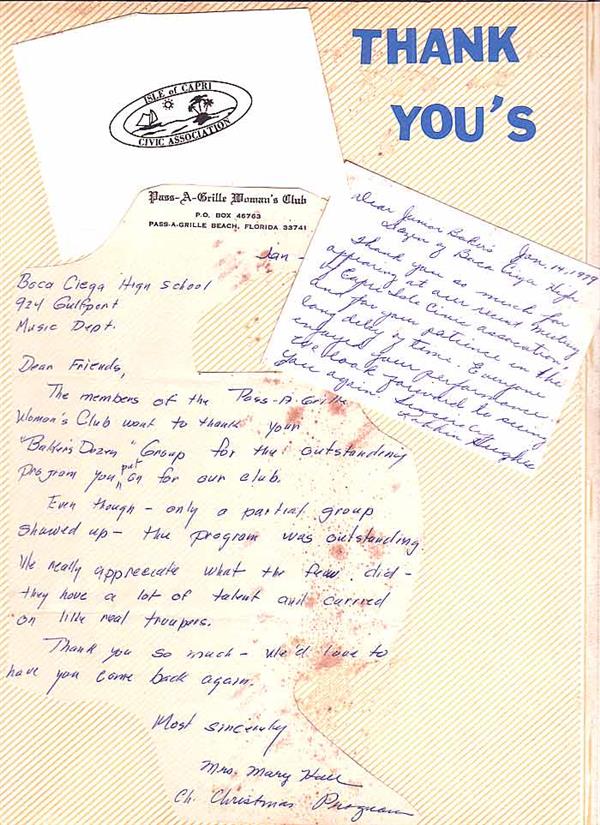 THANK
YOU'S
ISLE of CAPRI
CIVIC ASSOCIATION
Pass-A-Grille Woman's Club
P.O. BOX 46763
PASS-A-GRILLE BEACH, FLORIDA 33741
Jan -
Boca Ciega High School
924 Gulfport
Music Dept.
Dear Friends,
The members of the Pass-A-Grille
Woman's Club want to thank your
"Baker's Dozen" Group for the outstanding
program you put on for our club.
Even though - only a partial group
showed up - the program was outstanding
We really appreciate what the few did -
they have a lot of talent and carried
on like real troupers.
Thank you so much - We'd love to
have you come back again.
Most sincerely
Mrs. Mary Hall
Ch. Christmas Program
Jan. 14, 1979
Dear Junior Baker's
Dozen of Boca Ciega High
Thank you so much for
appearing at our recent meeting
of Capri Isle Civic association
and for your patience in the
long delay of time. Everyone
enjoyed your performance
We look forward to seeing
you again. Sincerely,